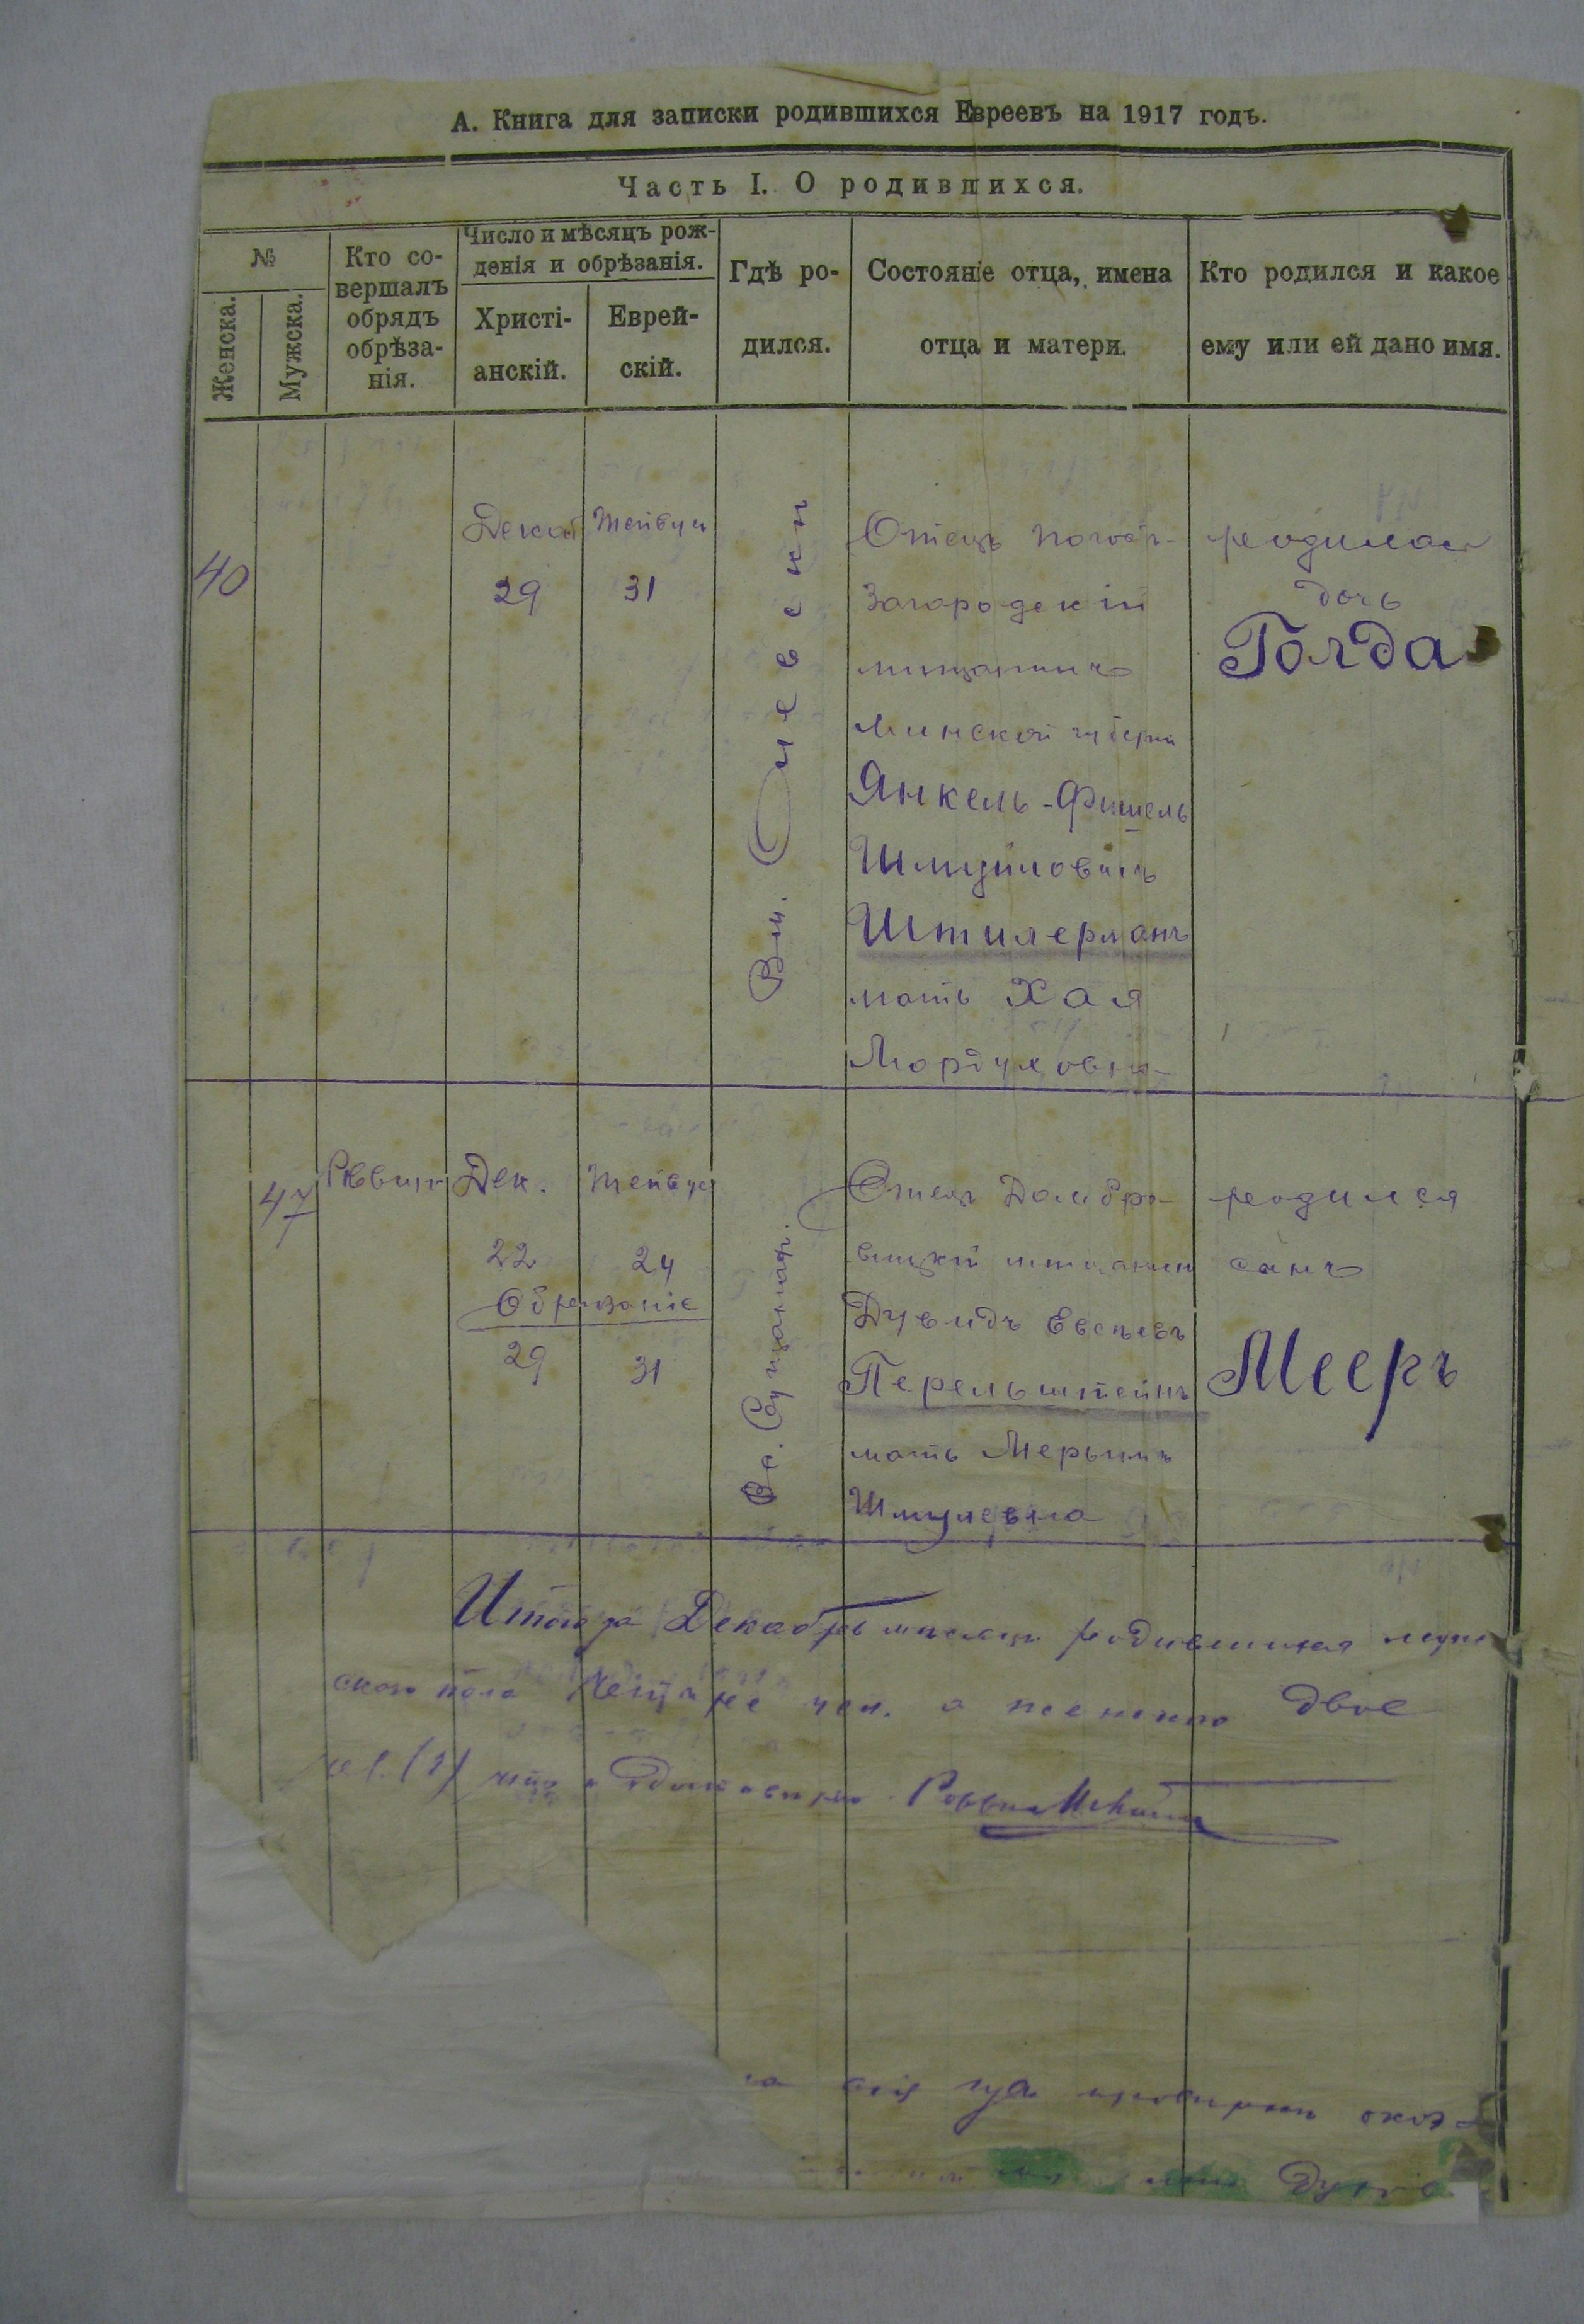 А. Книга для записки родившихся Евреевъ на 1917 годъ.
Часть I. О родившихся.
№
Женска.
Мужска.
Кто со-
вершалъ
обрядъ
обрѣза-
нія.
Число и мѣсяцъ рож-
денія и обрѣзанія.
Христі-
анскій.
Еврей-
скій.
Гдѣ ро-
дился.
Состояніе отца, имена
отца и матери.
Кто родился и какое
ему или ей дано имя.
40
Декаб
29
Тейвуса
31
Вм.
Отецъ Погост-
Загородскій
мищанинъ
Минской губерни
Янкель-Фишель
Шмуйловичъ
Штилерманъ
мать Хая
Мордуховна
родилась
дочь
Голда
47
Раввинъ
Дек.
22
Обрезаніе
29
Тейвуса
24
31
Отецъ Домбро-
вицкій мищанин
Дувидъ Евсѣевъ
Перельштейнъ
мать
Шмулевна
родился
сынъ
Мееръ
Итого за Декабрь месяцъ родившихся мужс
ского пола Четыре чел. а женского двое
Раввин